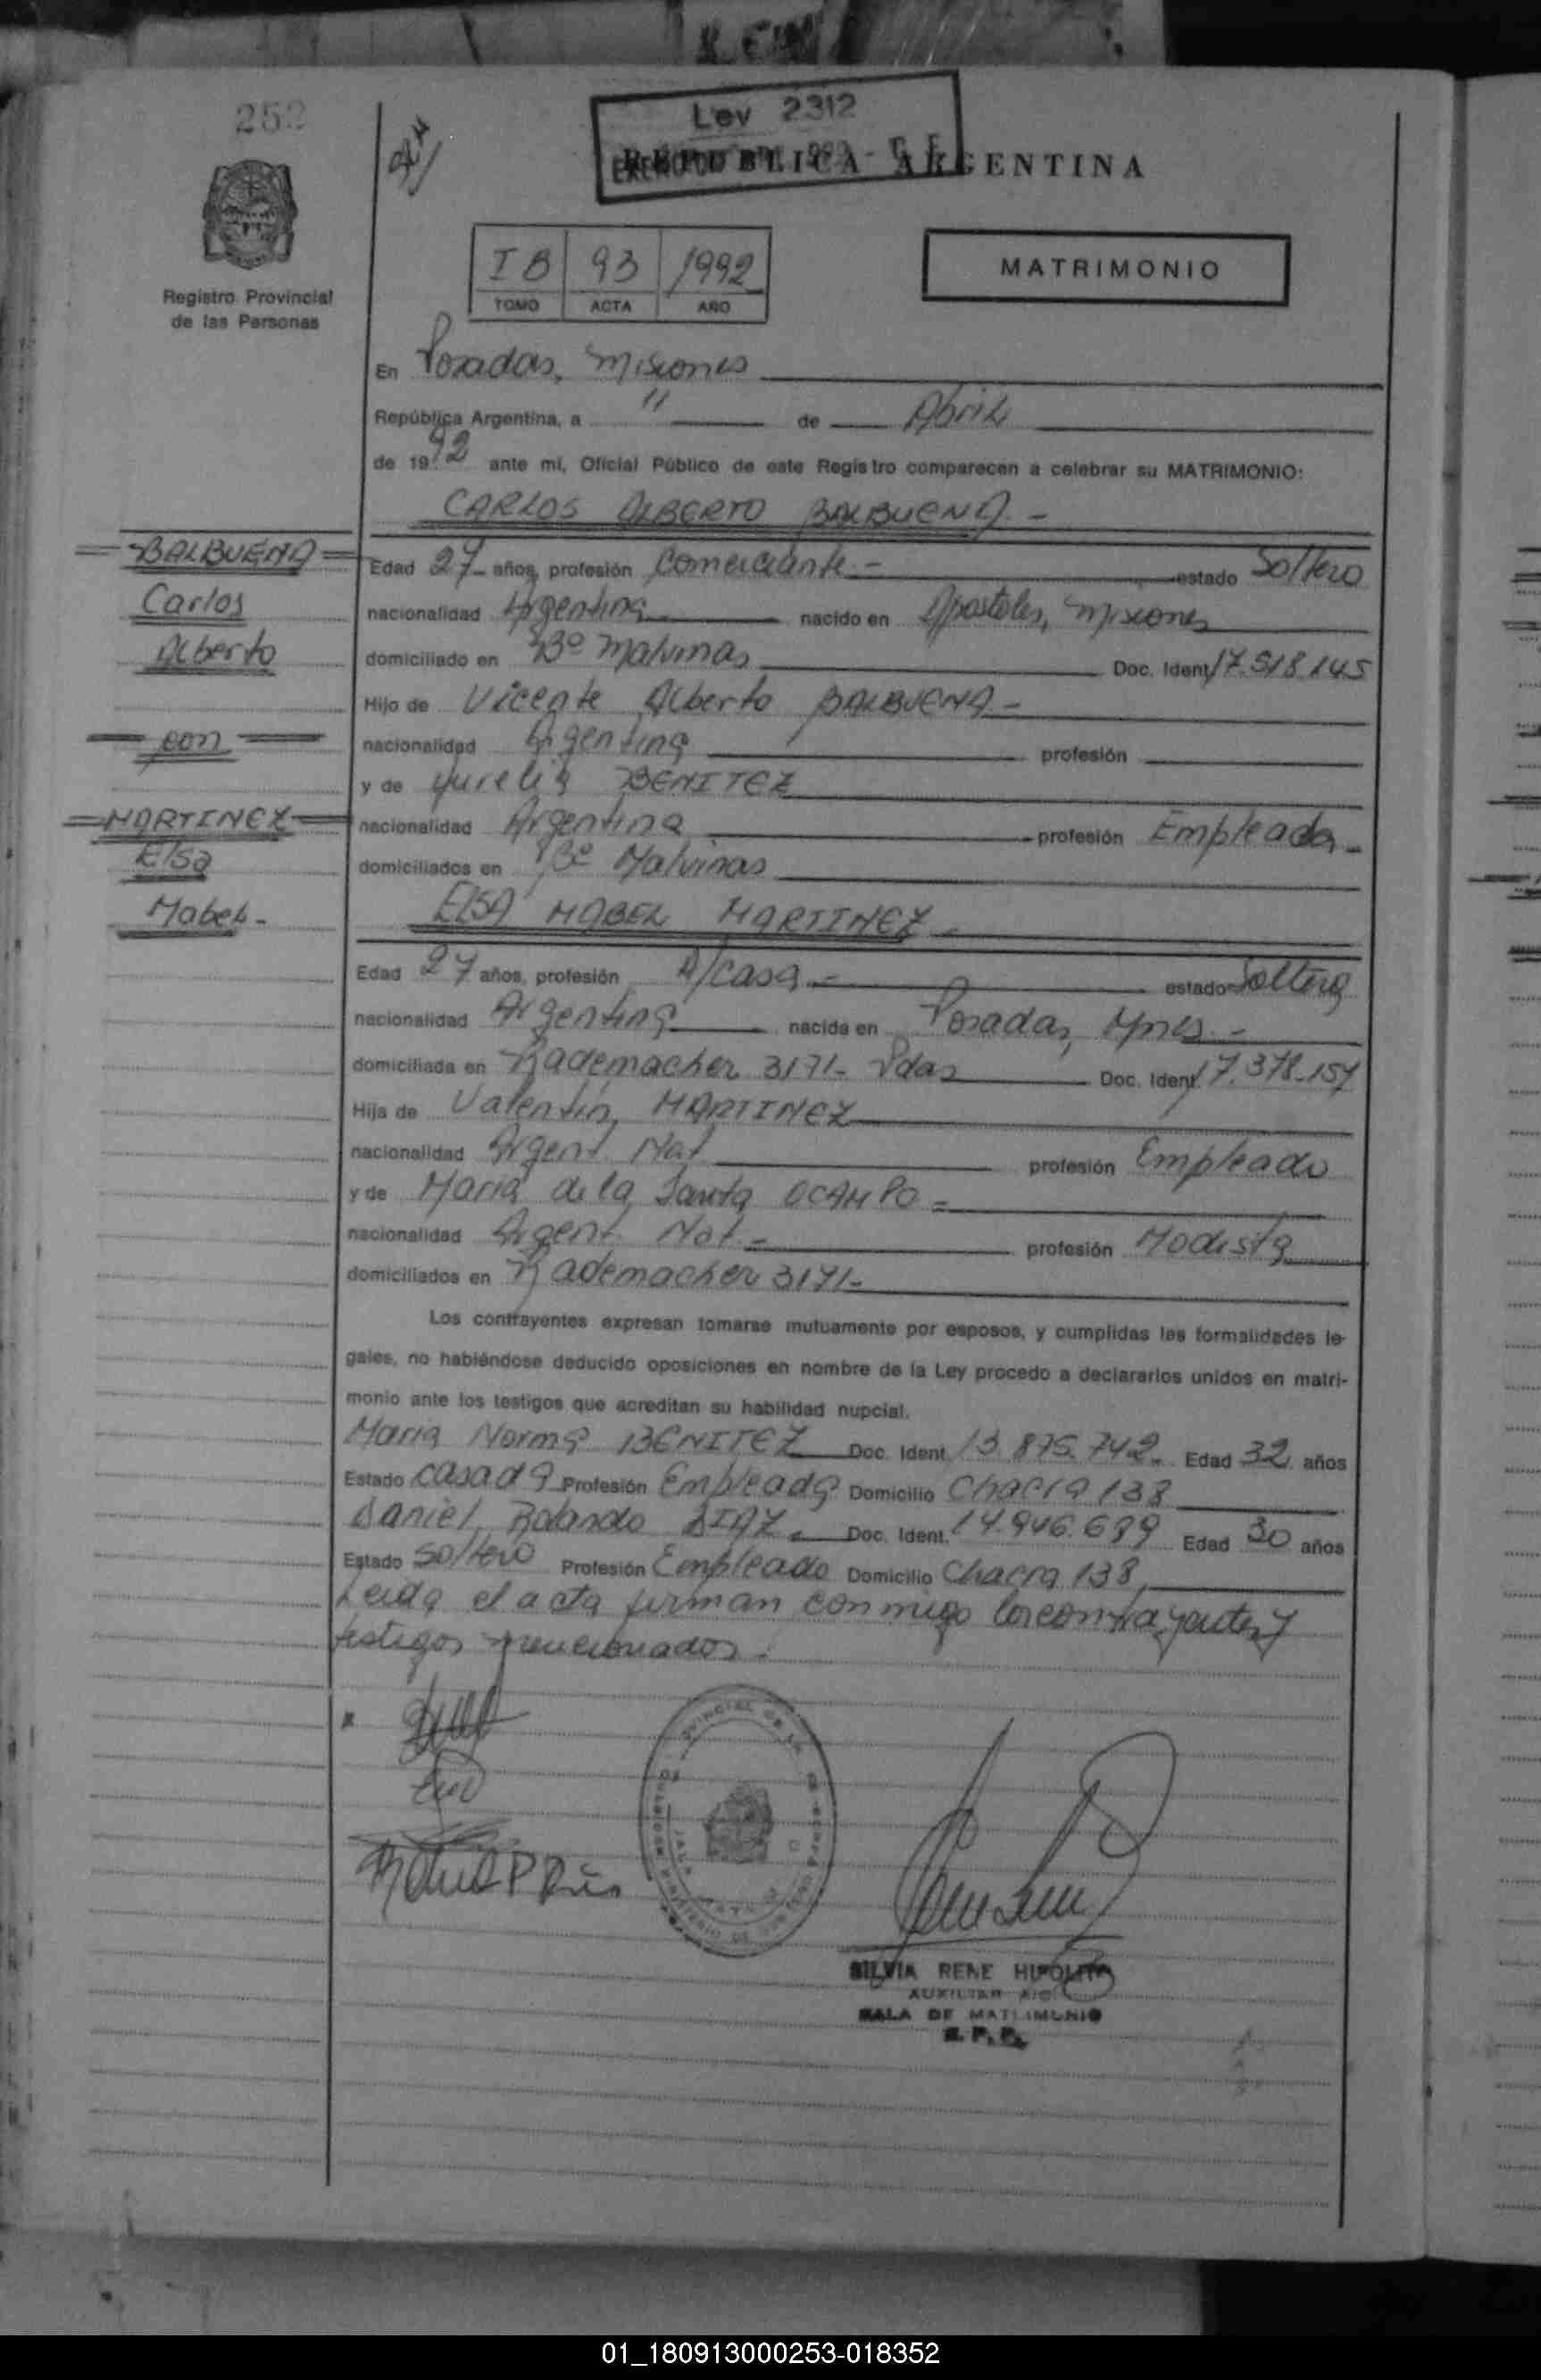 252
Ley 2312
REPUBLICA ARGENTINA
Registro Provincial
de las Personas
I B 93 1992
TOMO ACTA AÑO
MATRIMONIO
En Posadas, Misiones
República Argentina, a 11 de Abril
de 1992 ante mí, Oficial Público de este Registro comparecen a celebrar su MATRIMONIO:
CARLOS ALBERTO BALBUENA.-
BALBUENA
Carlos
Alberto
con
MARTINEZ
Elsa
Mabel-
Edad 27 años, profesión Comerciante.- estado Soltero
nacionalidad Argentina nacido en Apostoles, Misiones
domiciliado en Bº Malvinas Doc. Ident. 17.518.145
Hijo de Vicente Alberto BALBUENA-
nacionalidad Argentina profesión
y de BENITEZ
nacionalidad Argentina profesión Empleada-
domiciliados en Bº Malvinas
ELSA MABEL MARTINEZ-
Edad 27 años, profesión A/casa- estado Soltera
nacionalidad Argentina nacida en Posadas, Mnes-
domiciliada en Rademacher 3171- Pdas Doc. Ident. 17.378.157
Hija de Valentin MARTINEZ
nacionalidad Argent. Nat. profesión Empleado
y de Maria de la Santa OCAMPO-
nacionalidad Argent. Nat.- profesión Modista
domiciliados en Rademacher 3171-
Los contrayentes expresan tomarse mutuamente por esposos, y cumplidas las formalidades le-
gales, no habiéndose deducido oposiciones en nombre de la Ley procedo a declararlos unidos en matri-
monio ante los testigos que acreditan su habilidad nupcial.
Maria Norma BENITEZ Doc. Ident. 13.875.742- Edad 32 años
Estado casada Profesión Empleada Domicilio Chacra 138
Daniel Rolando DIAZ. Doc. Ident. 14.946.689 Edad 30 años
Estado soltero Profesión Empleado Domicilio Chacra 138,
Leida el acta firman conmigo los contrayentes y
testigos mencionados.
SILVIA RENE HIPOLITO
AUXILIAR A/C
SALA DE MATRIMONIO
R. P. P.
01_180913000253-018352